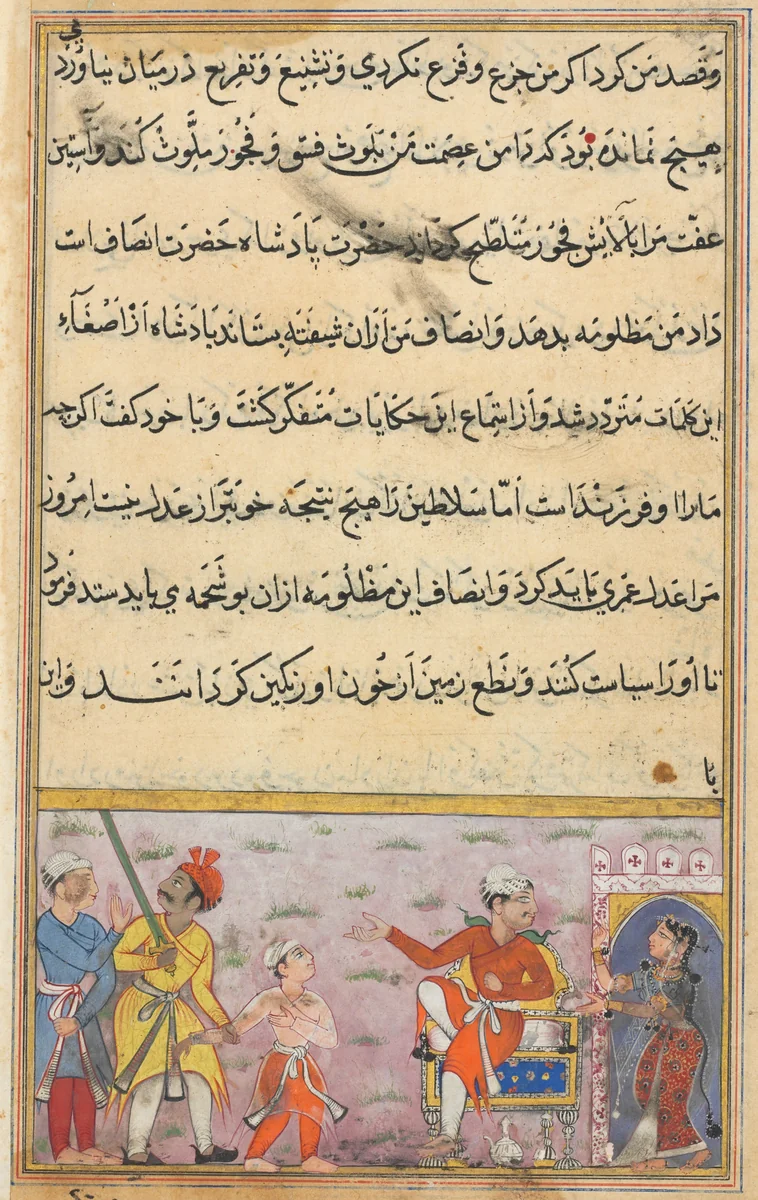 وقصد من كرد اكر من جزع وفزع نكردي وتشنيع وتفريع درميان نياورد
هيچ نمانده بود كه دامن عصمت من بلوث فسق و فجور ملوث كند وآستين
عفت مرا بآلايش فجور متلطخ كرداند حضرت پادشاه حضرت انصاف است
داد من مظلومه بدهد وانصاف من ازان شيفته بستاند پادشاه از اصغاء
اين كلمات متردد شد و از استماع اين حكايات متفكر كشت و با خود كفت اكرچه
مارا او فرزندست اما سلاطين را هيچ نتيجه خوبتر از عدل نيست امروز
مرا عدل عمري بايد كرد وانصاف اين مظلومه ازان بوشحمه مي بايد ستد فرمود
تا اورا سياست كنند و نطع زمين از خون او رنكين كردانند واين
با